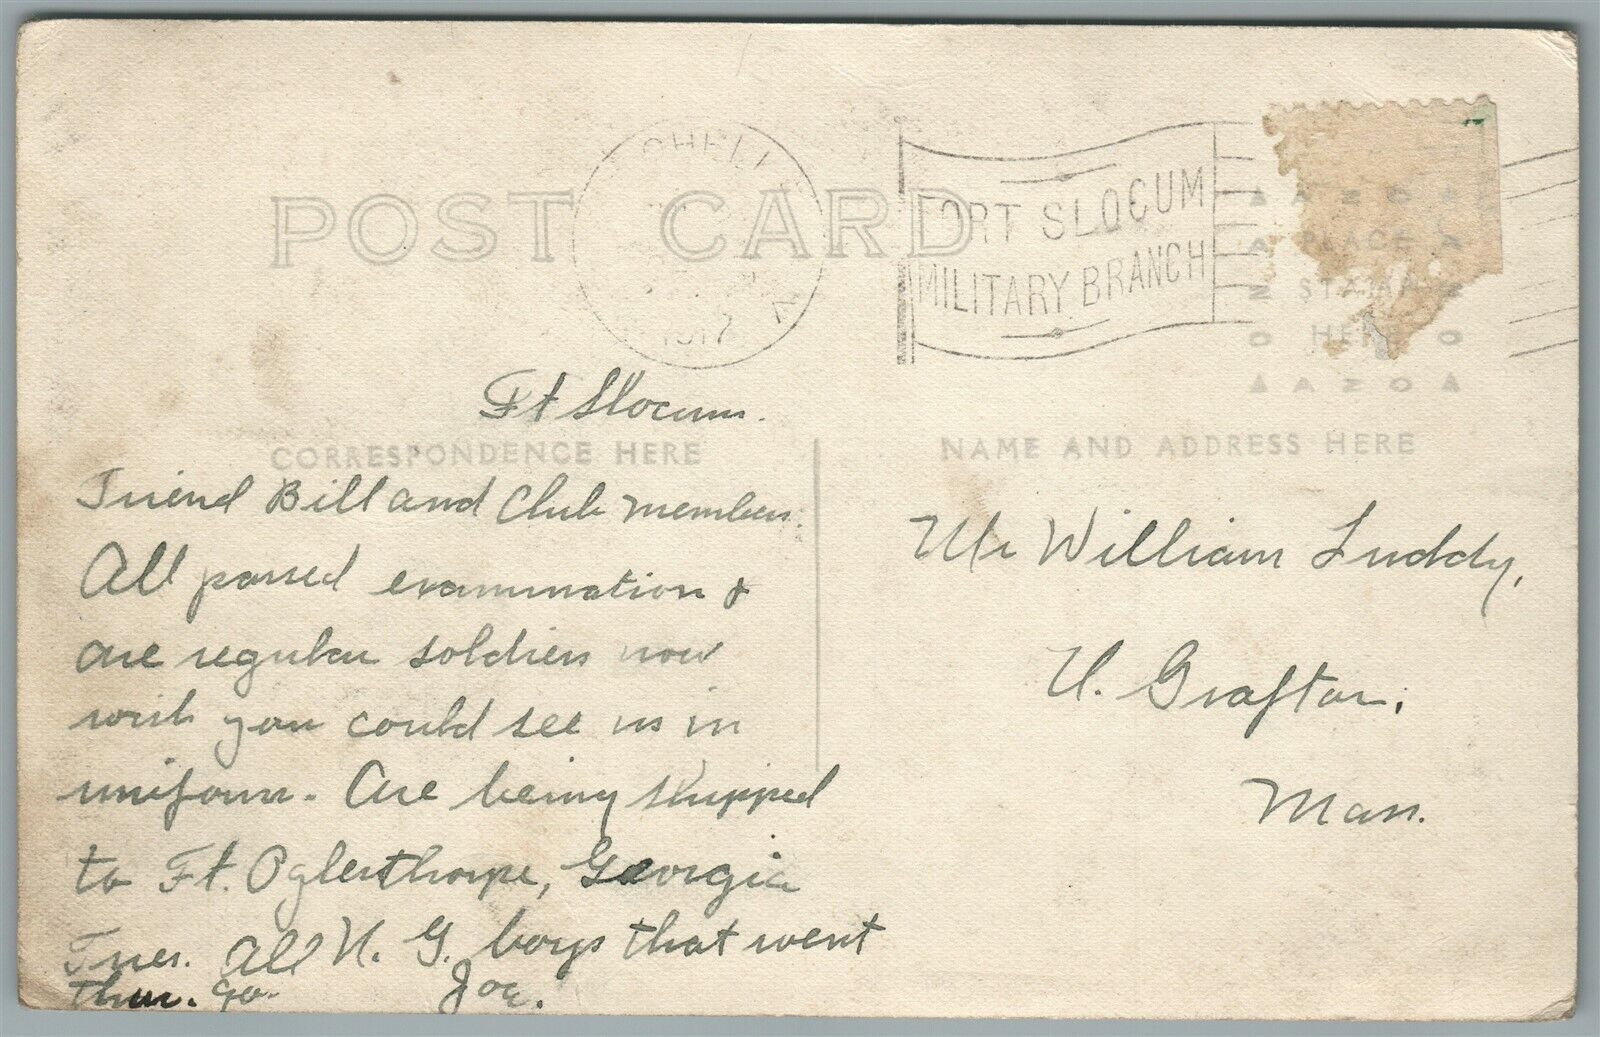 POST CARD
1917
FORT SLOCUM
MILITARY BRANCH
AZO
PLACE
STAMP
HERE
AZO
Ft Slocum.
CORRESPONDENCE HERE
NAME AND ADDRESS HERE
Friend Bill and Club members.
All passed examination &
are regular soldiers now
wish you could see us in
uniform. Are being shipped
to Ft. Oglesthorpe, Georgia
Tues. All N. G. boys that went
thur. go. Joe.
Mr William Luddy,
N. Grafton,
Mass.